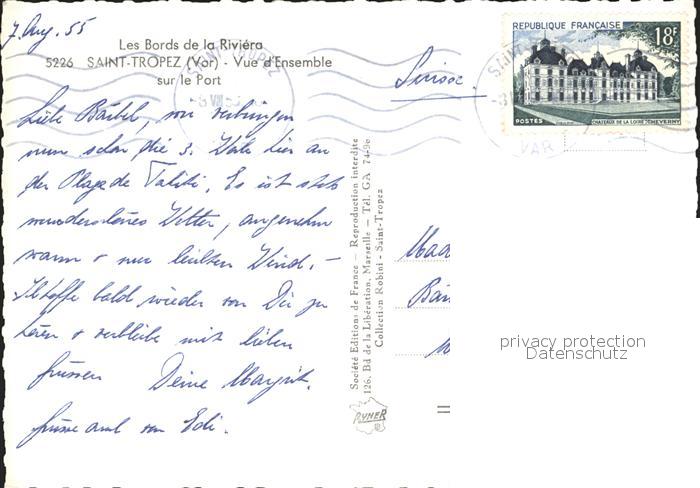 7 Aug. 55
Les Bords de la Riviéra
5226 SAINT-TROPEZ (Var) - Vue d'Ensemble
sur le Port
Liebe Bärbel, wir verbringen
nun schon die 3. Woche hier an
der Plage de Tahiti. Es ist stets
wunderschönes Wetter, angenehm
warm + nur leichter Wind. –
Ich hoffe bald wieder von Dir zu
hören + verbleibe mit lieben
Grüssen Deine Margrit.
Grüsse auch von Edi.
Société Editions de France — Reproduction interdite
126, Bd de la Libération, Marseille — Tél. GA 74-96
Collection Robini - Saint-Tropez
RYNER
REPUBLIQUE FRANÇAISE
18F
POSTES
CHATEAUX DE LA LOIRE : CHEVERNY
SAINT-TROPEZ
VAR
Suisse
Mad
Bä
privacy protection
Datenschutz